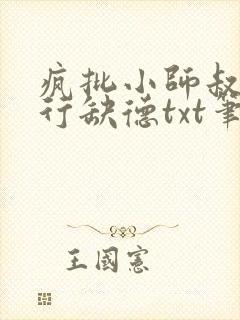 疯批小师叔
行缺德txt筆
王國憲